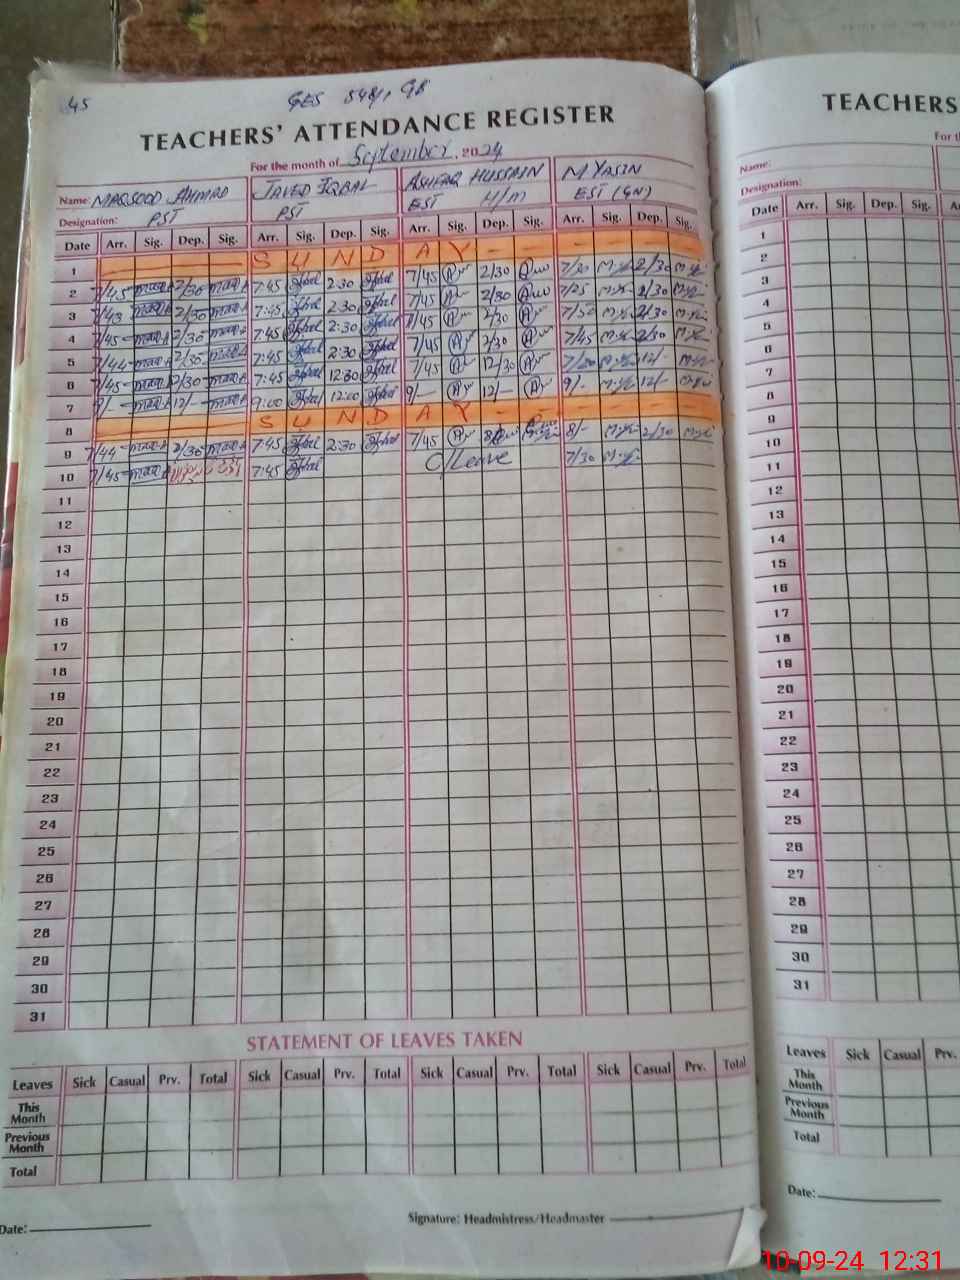 45
GES 548/, GB
TEACHERS' ATTENDANCE REGISTER
For the month of September, 2024
Name: MAQSOOD AHMAD JAVED IQBAL ASHFAQ HUSSAIN M YASIN
Designation: PST PST EST H/M EST (GN)
Date Arr. Sig. Dep. Sig. Arr. Sig. Dep. Sig. Arr. Sig. Dep. Sig. Arr. Sig. Dep. Sig.
1 S U N D A Y
2 7/45 2/30 7:45 2:30 7/45 2/30 7/20 2/30
3 7/43 2/30 7:45 2:30 7/45 2/30 7/25 2/30
4 7/45 2/30 7:45 2:30 7/45 2/30 7/30 2/30
5 7/44 2/30 7:45 2:30 7/45 2/30 7/45 2/30
6 7/45 2/30 7:45 12:30 7/45 12/30 12/-
7 9/- 12/- 9:00 12:00 9/- 12/- 9/- 12/-
8 S U N D A Y
9 7/44 2/30 7:45 2:30 7/45 8/- 2/30
10 7/45 7:45 C/Leave 7/30
11
12
13
14
15
16
17
18
19
20
21
22
23
24
25
26
27
28
29
30
31
STATEMENT OF LEAVES TAKEN
Leaves Sick Casual Prv. Total Sick Casual Prv. Total Sick Casual Prv. Total Sick Casual Prv. Total
This
Month
Previous
Month
Total
Date:
Signature: Headmistress/Headmaster
TEACHERS
For t
Name:
Designation:
Date Arr. Sig. Dep. Sig.
1
2
3
4
5
6
7
8
9
10
11
12
13
14
15
16
17
18
19
20
21
22
23
24
25
26
27
28
29
30
31
Leaves Sick Casual Prv.
This
Month
Previous
Month
Total
Date:
10-09-24 12:31